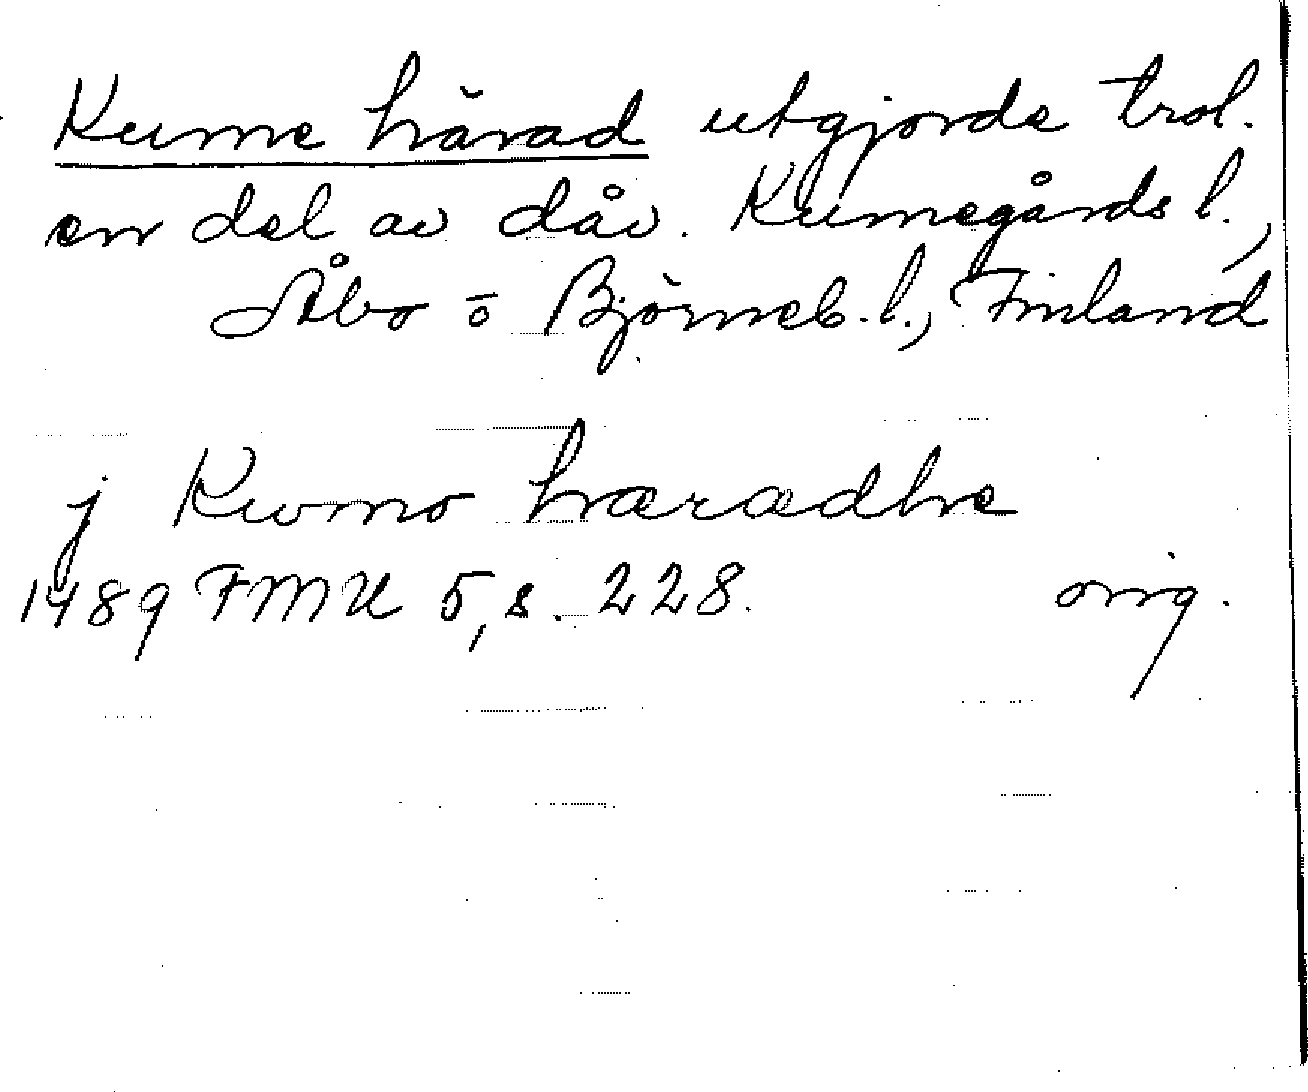 Kumo härad utgjorde trol.
en del av dåv. Kumogårds l.,
Åbo o Björneb. l., Finland
j Kwmo hæradhe
1489 FMU 5, s. 228. orig.